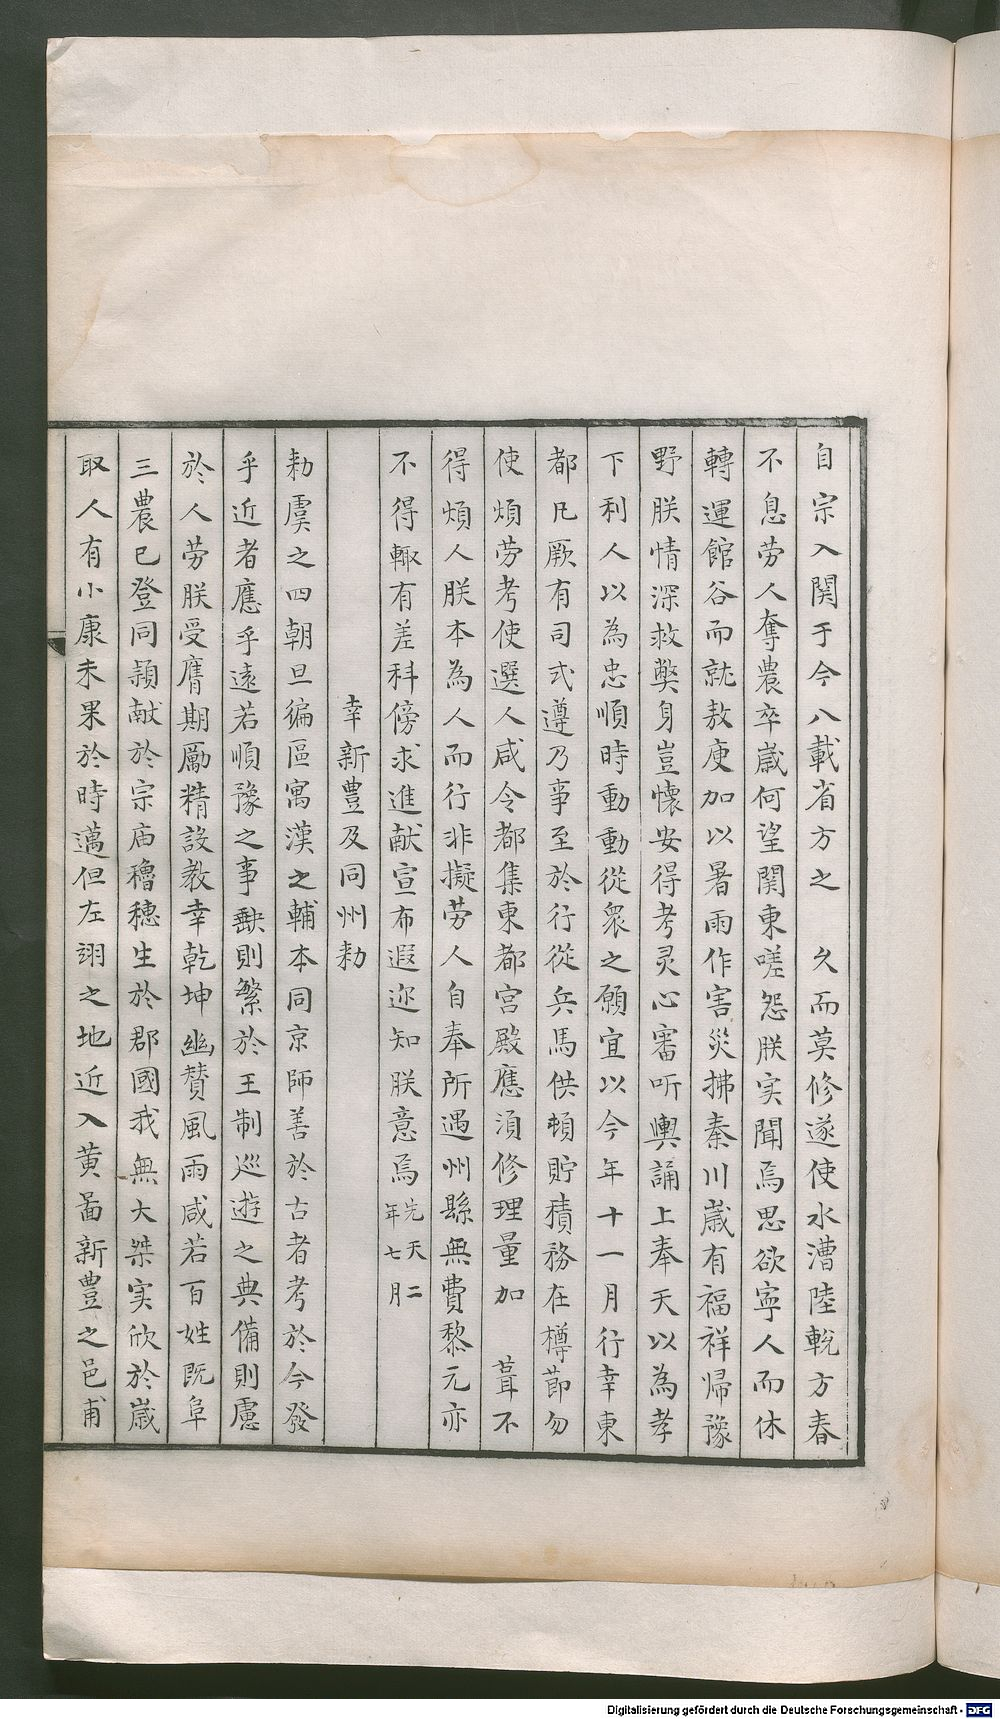 自宗入関于今八載省方之　久而莫修遂使水漕陸輓方春
不息劳人奪農卒歳何望関東嗟怨朕实聞焉思欲寧人而休
轉運館谷而就敖庾加以暑雨作害災拂秦川歳有福祥帰豫
野朕情深救獘身豈懐安得考灵心審听輿誦上奉天以為孝
下利人以為忠順時動動從衆之願宜以今年十一月行幸東
都凡厥有司式遵乃事至於行從兵馬供頓貯積務在樽節勿
使煩劳考使選人咸令都集東都宫殿應湏修理量加　葺不
得煩人朕本為人而行非擬劳人自奉所遇州縣無費黎元亦
不得輙有差科傍求進献宣布遐迩知朕意焉先天二年七月
幸新豊及同州勑
勑虞之四朝旦徧區寓漢之輔本同京師善於古者考於今發
乎近者應乎遠若順豫之事缺則繁於王制巡遊之典備則慮
於人劳朕受膺期勵精設教幸乾坤幽賛風雨咸若百姓既阜
三農已登同頴献於宗庙穭穗生於郡國我無大桀实欣於歳
取人有小康未果於時邁但左翊之地近入黄畵新豊之邑甫
Digitalisierung gefördert durch die Deutsche Forschungsgemeinschaft - DFG